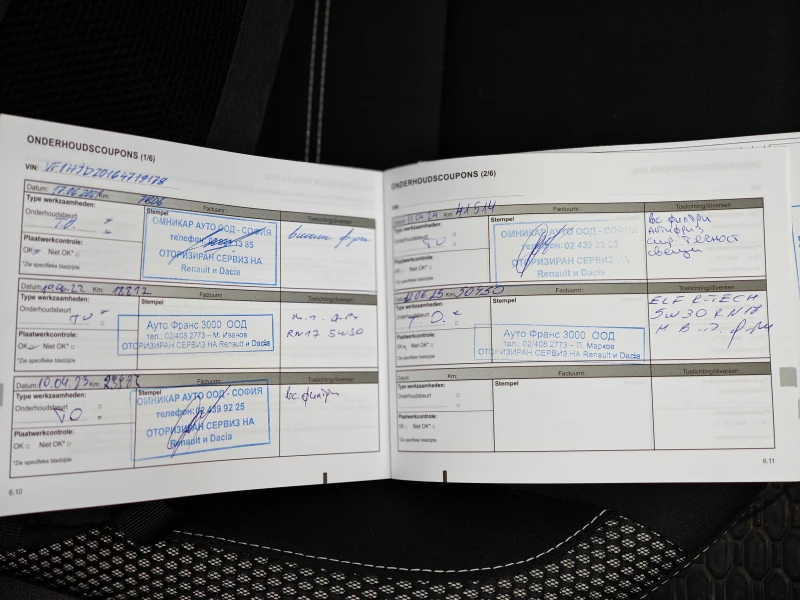 ONDERHOUDSCOUPONS (1/6)
VIN:
Datum: Km: 7606 Factuurnr.
Type werkzaamheden: Stempel Toelichting/diversen
Onderhoudsbeurt
Т.О.
ОМНИКАР АУТО ООД - СОФИЯ
Plaatwerkcontrole:
OK Niet OK*
ОТОРИЗИРАН СЕРВИЗ НА
Renault и Dacia
*Zie specifieke bladzijde
Datum: Km: Factuurnr.
Type werkzaamheden: Stempel Toelichting/diversen
Onderhoudsbeurt
Ауто Франс 3000 ООД
тел.: 02/408 2773 – М. Манов
ОТОРИЗИРАН СЕРВИЗ на Renault и Dacia
RN17 5W30
Plaatwerkcontrole:
OK Niet OK*
*Zie specifieke bladzijde
Datum: 10.04.23 Km: Factuurnr.
Type werkzaamheden: Stempel Toelichting/diversen
Onderhoudsbeurt
ТО
ОМНИКАР АУТО ООД - СОФИЯ
телефон: 02 439 92 25
ОТОРИЗИРАН СЕРВИЗ НА
Renault и Dacia
вс филтри
Plaatwerkcontrole:
OK Niet OK*
*Zie specifieke bladzijde
6.10
ONDERHOUDSCOUPONS (2/6)
VIN
Datum: Km: 41514 Factuurnr.
Type werkzaamheden: Stempel Toelichting/diversen
Onderhoudsbeurt
ОМНИКАР АУТО ООД - СОФИЯ
ОТОРИЗИРАН СЕРВИЗ НА
Renault и Dacia
вс филтри
Антифриз
спир. течност
свещи
Plaatwerkcontrole:
OK Niet OK*
*Zie specifieke bladzijde
Km: Factuurnr.
Type werkzaamheden: Stempel Toelichting/diversen
Onderhoudsbeurt
Т.О.
Ауто Франс 3000 ООД
тел.: 02/408 2773 – П. Марков
ОТОРИЗИРАН СЕРВИЗ на Renault и Dacia
ELF R-TECH
5W30 RN17
Plaatwerkcontrole:
OK Niet OK*
*Zie specifieke bladzijde
Datum: Km: Factuurnr. Toelichting/diversen
Type werkzaamheden: Stempel
Onderhoudsbeurt
Plaatwerkcontrole:
OK Niet OK*
*Zie specifieke bladzijde
6.11